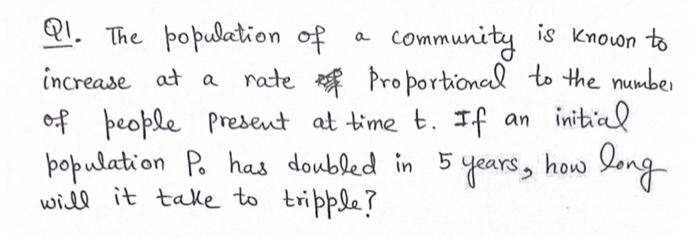 Q1. The population of a community is known to
increase at a rate proportional to the number
of people present at time t. If an initial
population P₀ has doubled in 5 years, how long
will it take to tripple?